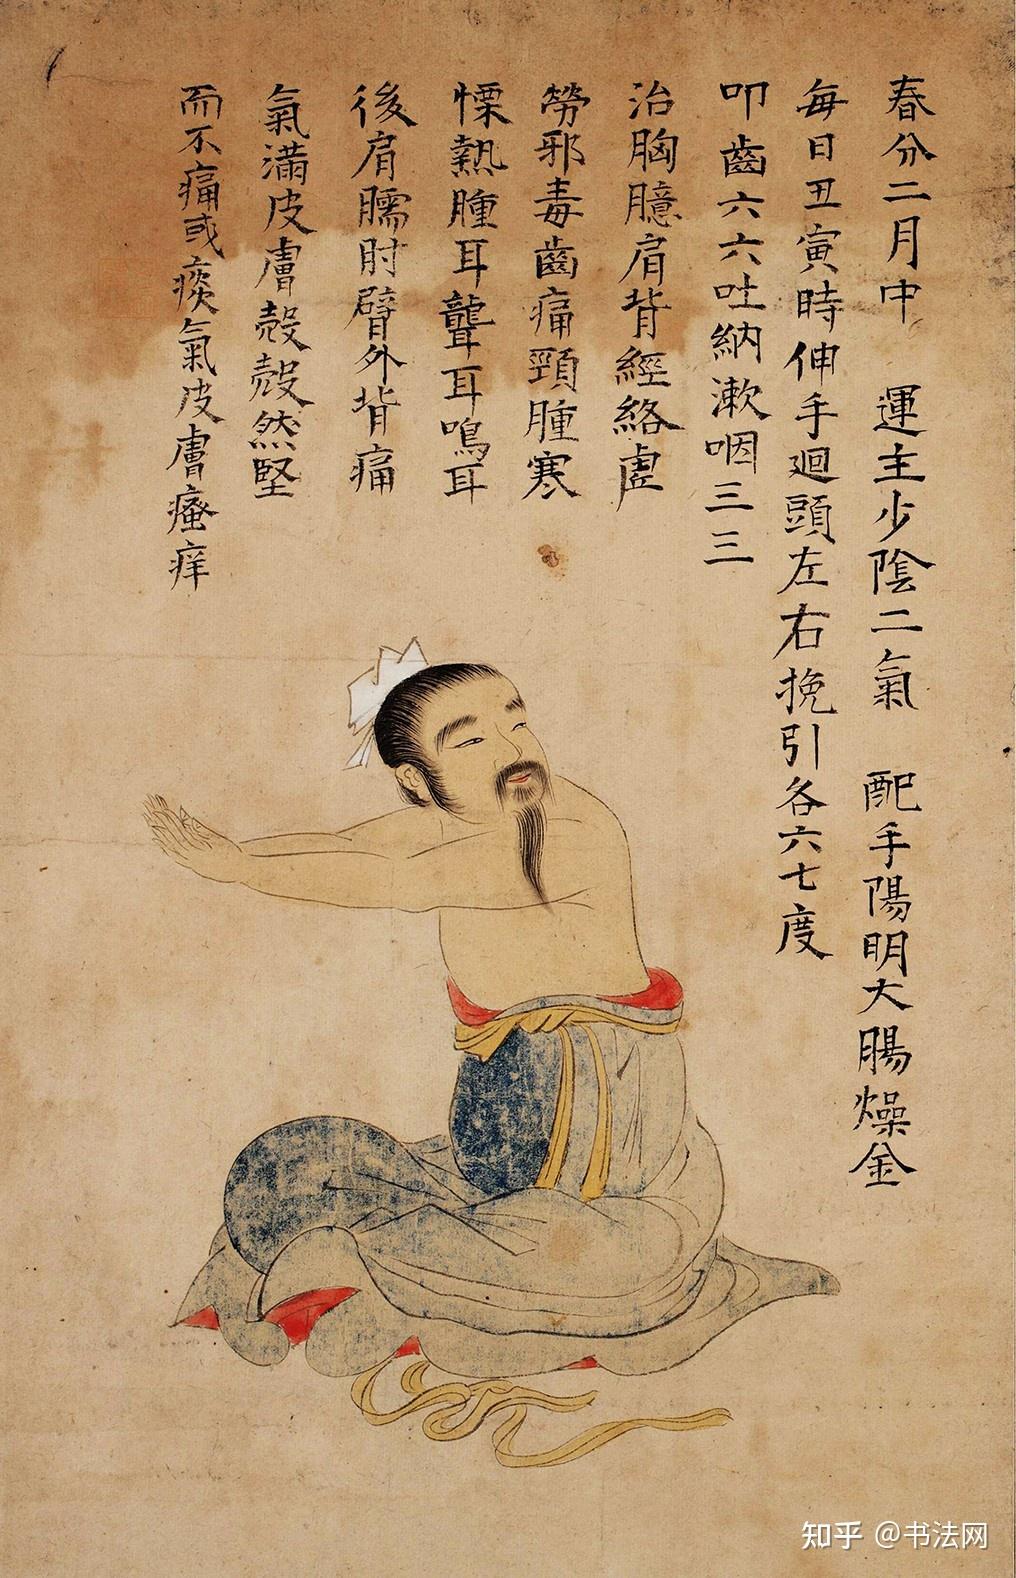 春分二月中　運主少陰二氣　配手陽明大腸燥金
每日丑寅時伸手迴頭左右挽引各六七度
叩齒六六吐納漱咽三三
治胸臆肩背經絡虛
勞邪毒齒痛頸腫寒
慄熱腫耳聾耳鳴耳
後肩臑肘臂外背痛
氣滿皮膚殼殼然堅
而不痛或痰氣皮膚瘙痒
知乎 @书法网